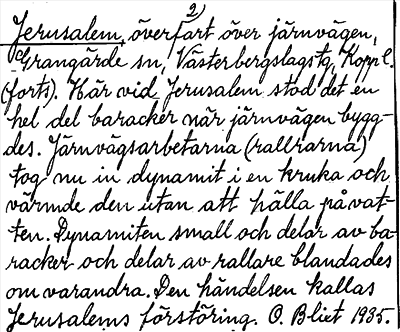 2)
Jerusalem, överfart över järnvägen,
Grangärde sn, Västerbergslags tg, Koppl.
(forts). Här vid Jerusalem stod det en
hel del baracker när järnvägen bygg-
des. Järnvägsarbetarna (rallrarna)
tog nu in dynamit i en kruka och
värmde den utan att hälla på vat-
ten. Dynamiten small och delar av ba-
racker och delar av rallare blandades
om varandra. Den händelsen kallas
Jerusalems förstöring. O. Bliet 1935.